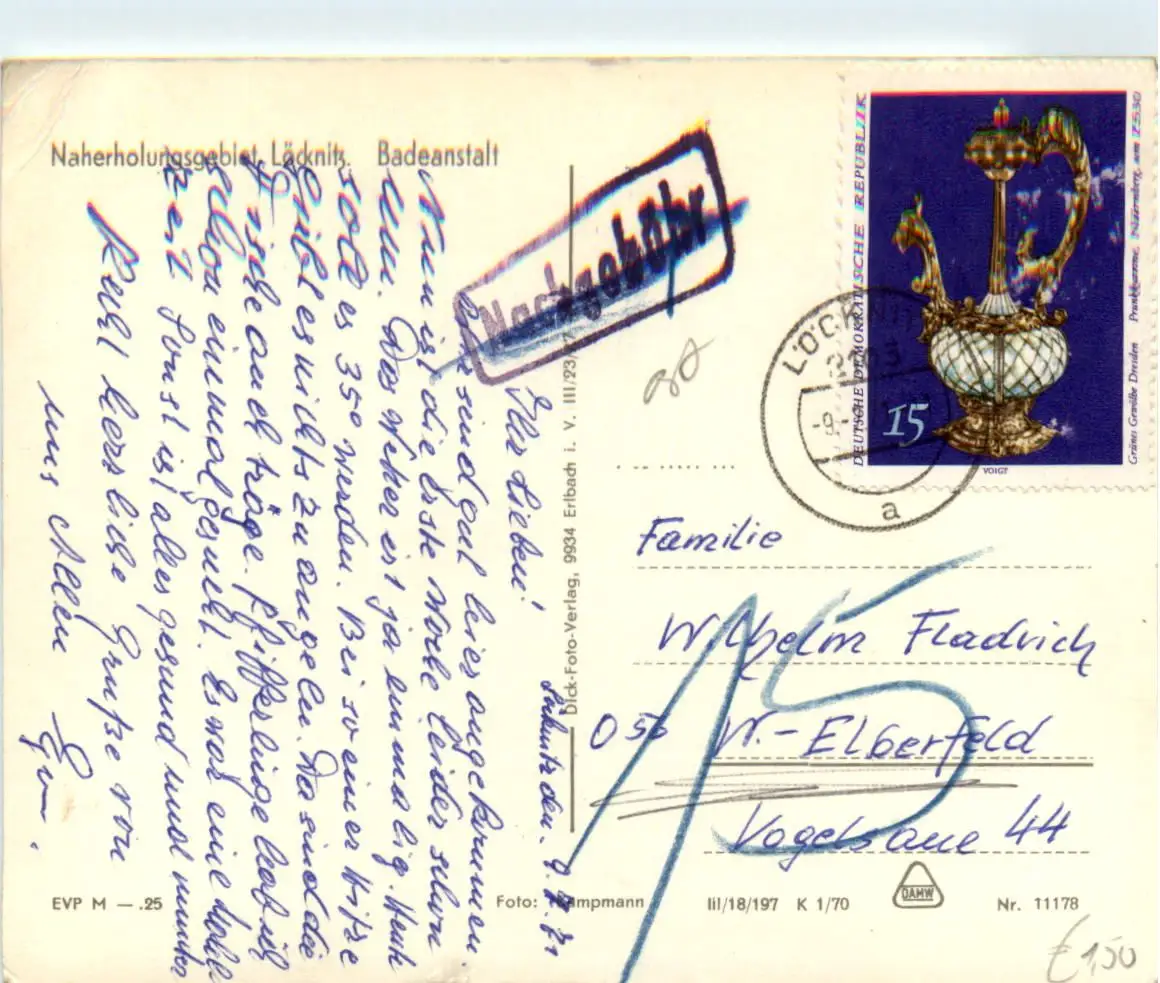 Naherholungsgebiet Löcknitz Badeanstalt
Löcknitz den. 9.7.71
Ihr Lieben!
sind gut hier angekommen.
Nun ist die erste Woche leider schon
um. Das Wetter ist ja einmalig. Heute
soll es 35° werden. Bei so einer Hitze
gibt es nichts zu angeln. Da sind die
Fische auch träge. Pfifferlinge hab ich
schon einmal gesucht. Es war eine
Zeit. Sonst ist alles gesund und munter
Recht herzliche Grüße von
uns Allen
Nachgebühr
Dick-Foto-Verlag, 9934 Erlbach i. V. III/23/
DEUTSCHE DEMOKRATISCHE REPUBLIK
15
VOIGT
Grünes Gewölbe Dresden Prunkkanne, Nürnberg, um 1530
LÖCKNITZ
2103
-9.
a
Familie
Wilhelm Fladrich
056 W.-Elberfeld
Vogelsaue 44
15
EVP M — .25
Foto:
III/18/197 K 1/70
DAMW
Nr. 11178
€ 1,50